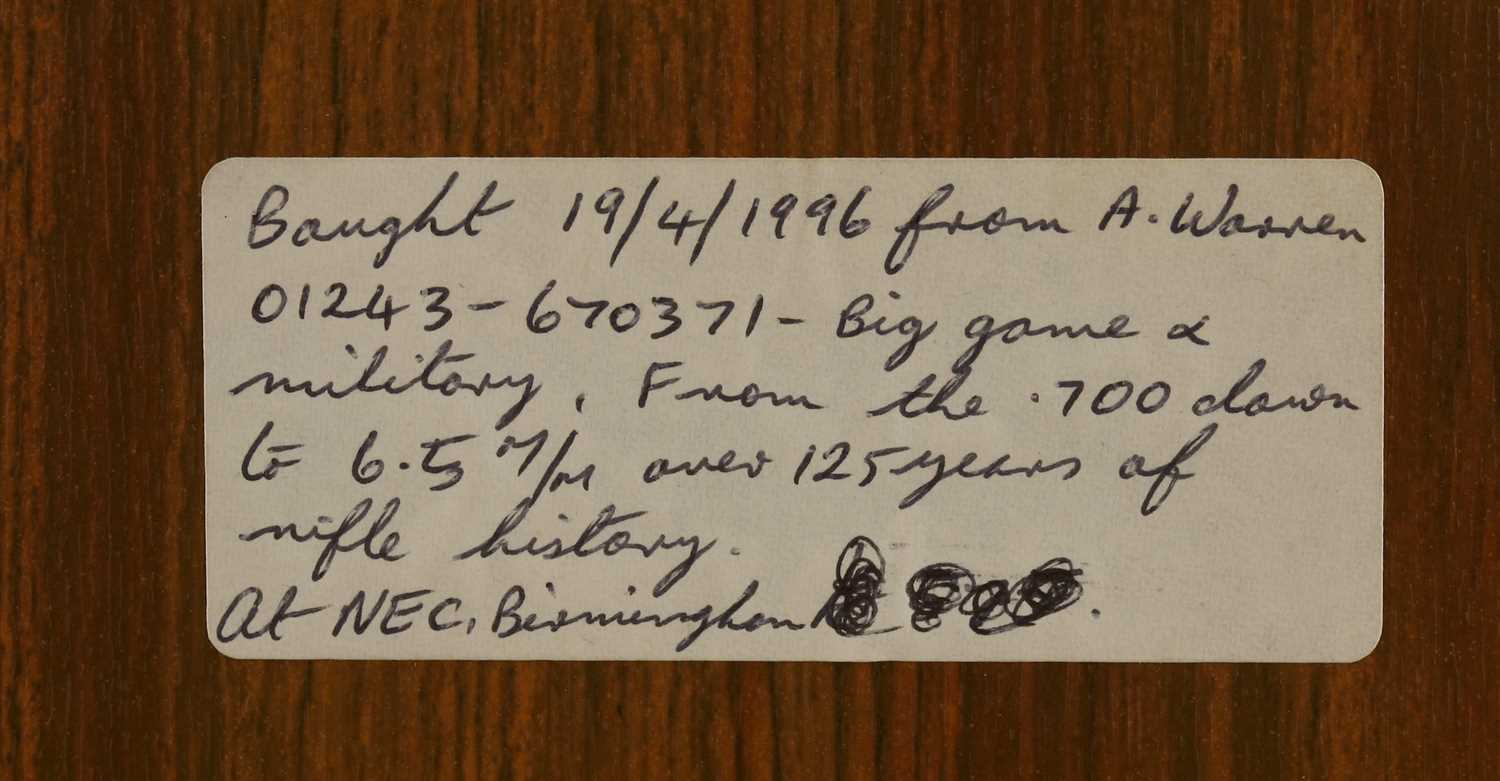 Bought 19/4/1996 from A. Warren
01243-670371 - Big game &
military, From the .700 down
to 6.5 M/M over 125 years of
rifle history.
At NEC, Birmingham